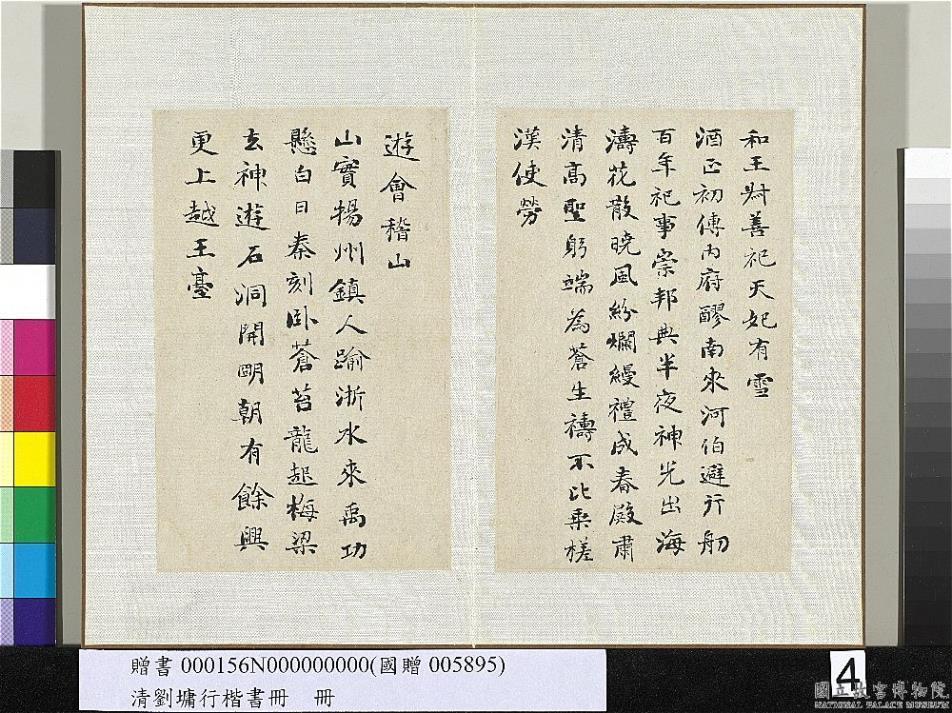 和王尉善祀天妃有雪
酒正初傳內府醪南來河伯避行舠
百年祀事崇邦典半夜神光出海
濤花散曉風紛爛縵禮成春殿肅
清高聖躬端為蒼生禱不比乘槎
漢使勞
遊會稽山
山實揚州鎮人踰浙水來禹功
懸白日秦刻臥蒼苔龍起梅梁
去神遊石洞開明朝有餘興
更上越王臺
贈書 000156N000000000(國贈 005895)
清劉墉行楷書冊 冊
4
國立故宮博物院
NATIONAL PALACE MUSEUM